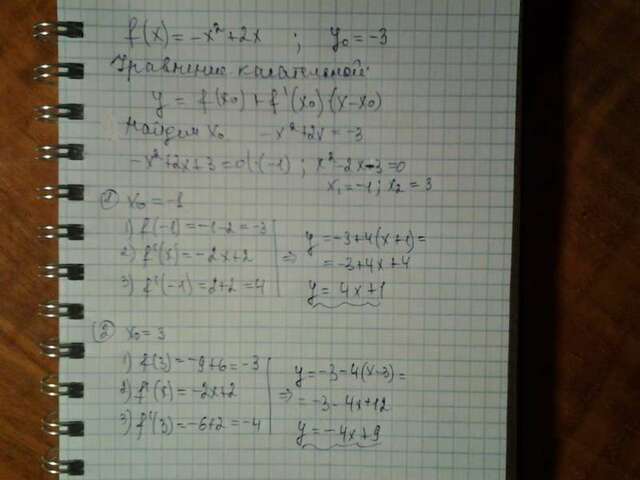 f(x) = -x²+2x ; y₀ = -3
Уравнение касательной
y = f(x₀)+f'(x₀)(x-x₀)
Найдем x₀ -x²+2x = -3
-x²+2x+3=0|·(-1) ; x²-2x-3=0
x₁=-1; x₂=3
① x₀ = -1
1) f(-1) = -1-2 = -3
2) f'(x) = -2x+2
3) f'(-1) = 2+2 = 4
⇒ y = -3+4(x+1) =
= -3+4x+4
y = 4x+1
② x₀ = 3
1) f(3) = -9+6 = -3
2) f'(x) = -2x+2
3) f'(3) = -6+2 = -4
⇒ y = -3-4(x-3) =
= -3-4x+12
y = -4x+9